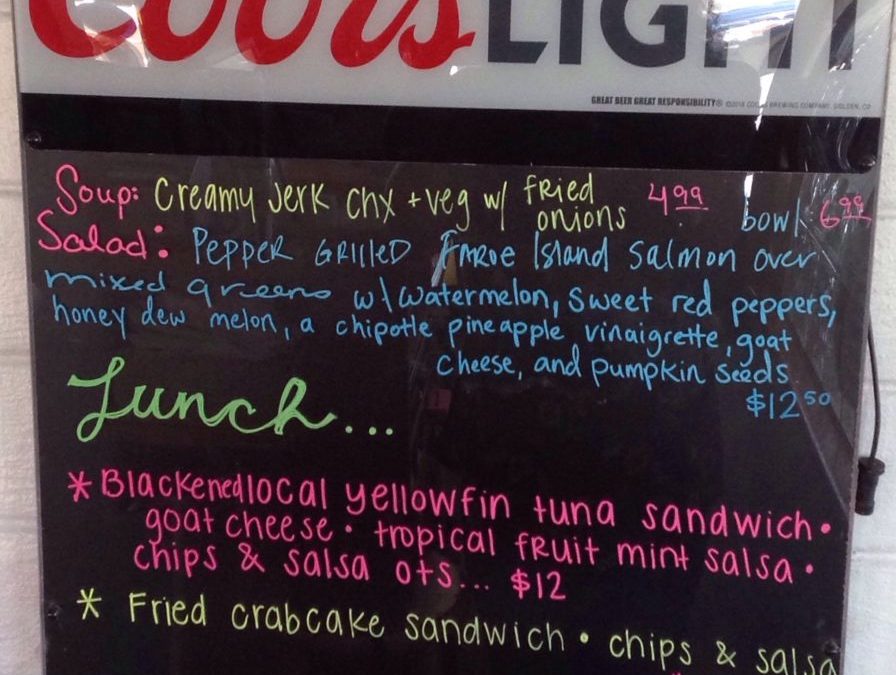 Coors LIGHT
GREAT BEER GREAT RESPONSIBILITY® ©2014 COORS BREWING COMPANY, GOLDEN, CO
Soup: Creamy Jerk chx + veg w/ fried onions 4.99 bowl 6.99
Salad: Pepper Grilled Faroe Island Salmon over
mixed greens w/ watermelon, sweet red peppers,
honey dew melon, a chipotle pineapple vinaigrette, goat
cheese, and pumpkin seeds
$12.50
Lunch...
* Blackened local yellowfin tuna sandwich •
goat cheese • tropical fruit mint salsa •
chips & salsa ots... $12
* Fried crabcake sandwich • chips & salsa